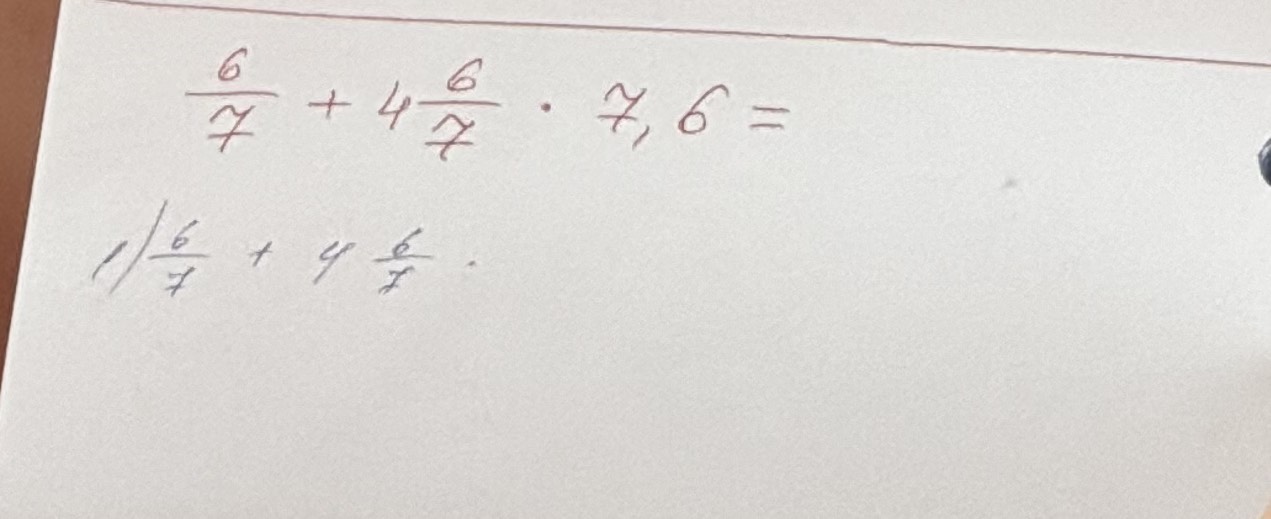 6/7 + 4 6/7 · 7,6 =
1) 6/7 + 4 6/7 ·